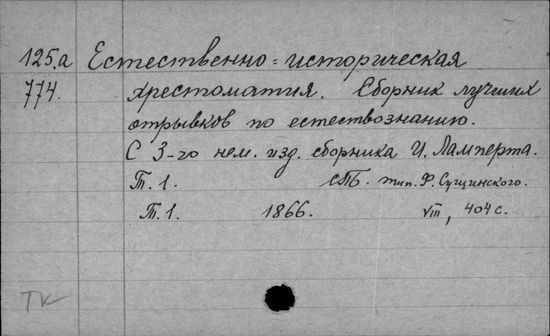 125.а Естественно=историческая
774. хрестоматия. Сборник лучших
отрывков по естествознанию.
С 3-го нем. изд. сборника И. Ламперта.
Т. 1. СПБ. тип. Ф. Сущинского.
Т. 1. 1866. VIII, 404 с.
ТК